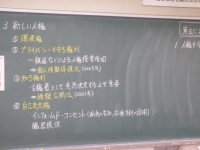 3 新しい人権
① 環境権
② プライバシーを守る権利
⇒ 個人情報保護法(2003年)
③ 知る権利
主権者として意思決定する上で重要
⇒ 情報公開法(2001年)
④ 自己決定権
インフォームド・コンセント
臓器提供